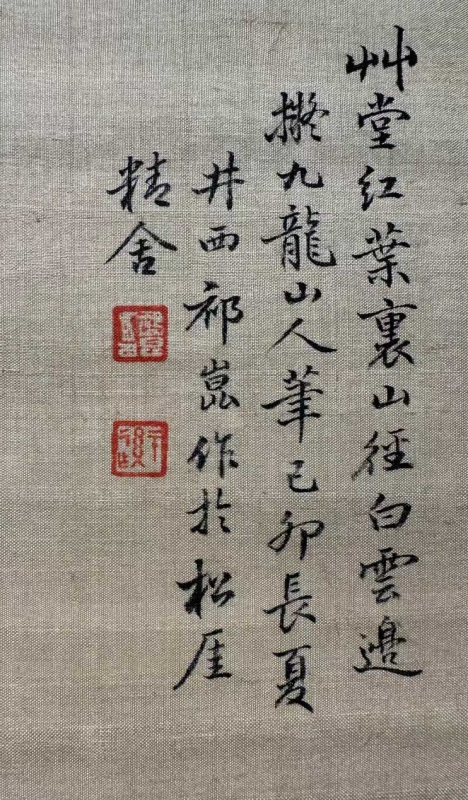 艸堂紅葉裏山徑白雲邊
擬九龍山人筆己卯長夏
井西祁崑作於松厓
精舍